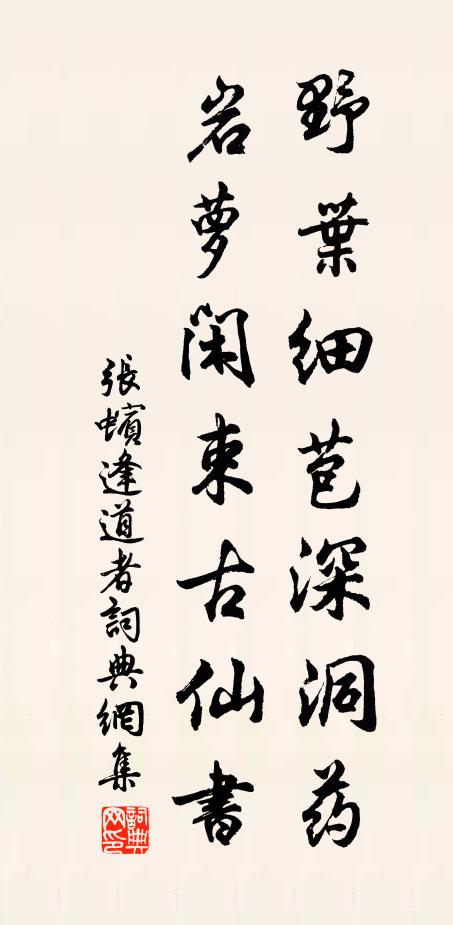 野葉细苞深洞药
岩萝闲束古仙書
張蠙逢道者詞典網集
詞典
网印